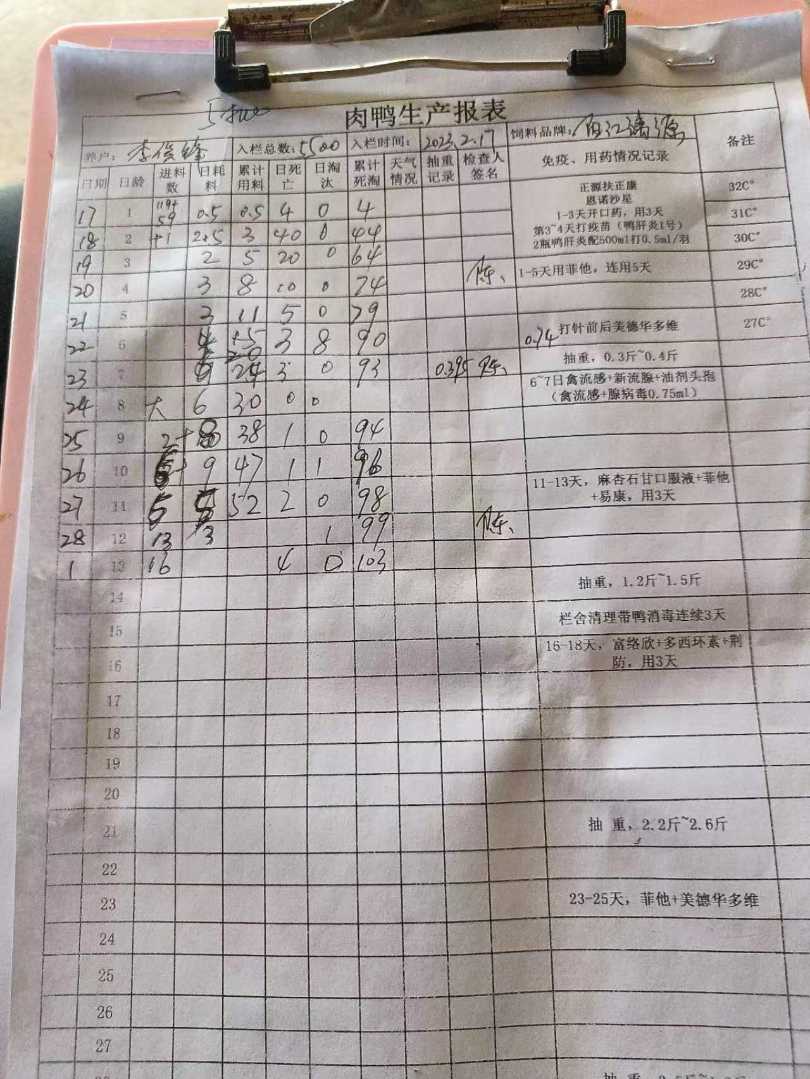 肉鸭生产报表
养户： 入栏总数：5500 入栏时间：2023.2.17 饲料品牌： 备注
日期 日龄 进料数 日耗料 累计用料 日死亡 日淘汰 累计死淘 天气情况 抽重记录 检查人签名 免疫、用药情况记录
17 1 59 0.5 0.5 4 0 4 正源扶正康 32C°
恩诺沙星
18 2 +1 2.5 3 40 0 44 1-3天开口药，用3天 31C°
第3~4天打疫苗（鸭肝炎1号）
2瓶鸭肝炎配500ml打0.5ml/羽 30C°
19 3 2 5 20 0 64
20 4 3 8 10 0 74 1-5天用菲他，连用5天 29C°
21 5 3 11 5 0 79 28C°
22 6 4 15 3 8 90 0.74 打针前后美德华多维 27C°
23 7 9 24 3 0 93 0.395 抽重，0.3斤~0.4斤
24 8 大 6 30 0 0 6~7日禽流感+新流腺+油剂头孢
（禽流感+腺病毒0.75ml）
25 9 2+ 8 38 1 0 94
26 10 9 47 1 1 96
27 11 5 5 52 2 0 98 11-13天，麻杏石甘口服液+菲他
+易康，用3天
28 12 13 3 1 99
1 13 16 4 0 103
14 抽重，1.2斤~1.5斤
15 栏舍清理带鸭消毒连续3天
16 16-18天，富络欣+多西环素+荆
防，用3天
17
18
19
20
21 抽 重，2.2斤~2.6斤
22
23 23-25天，菲他+美德华多维
24
25
26
27